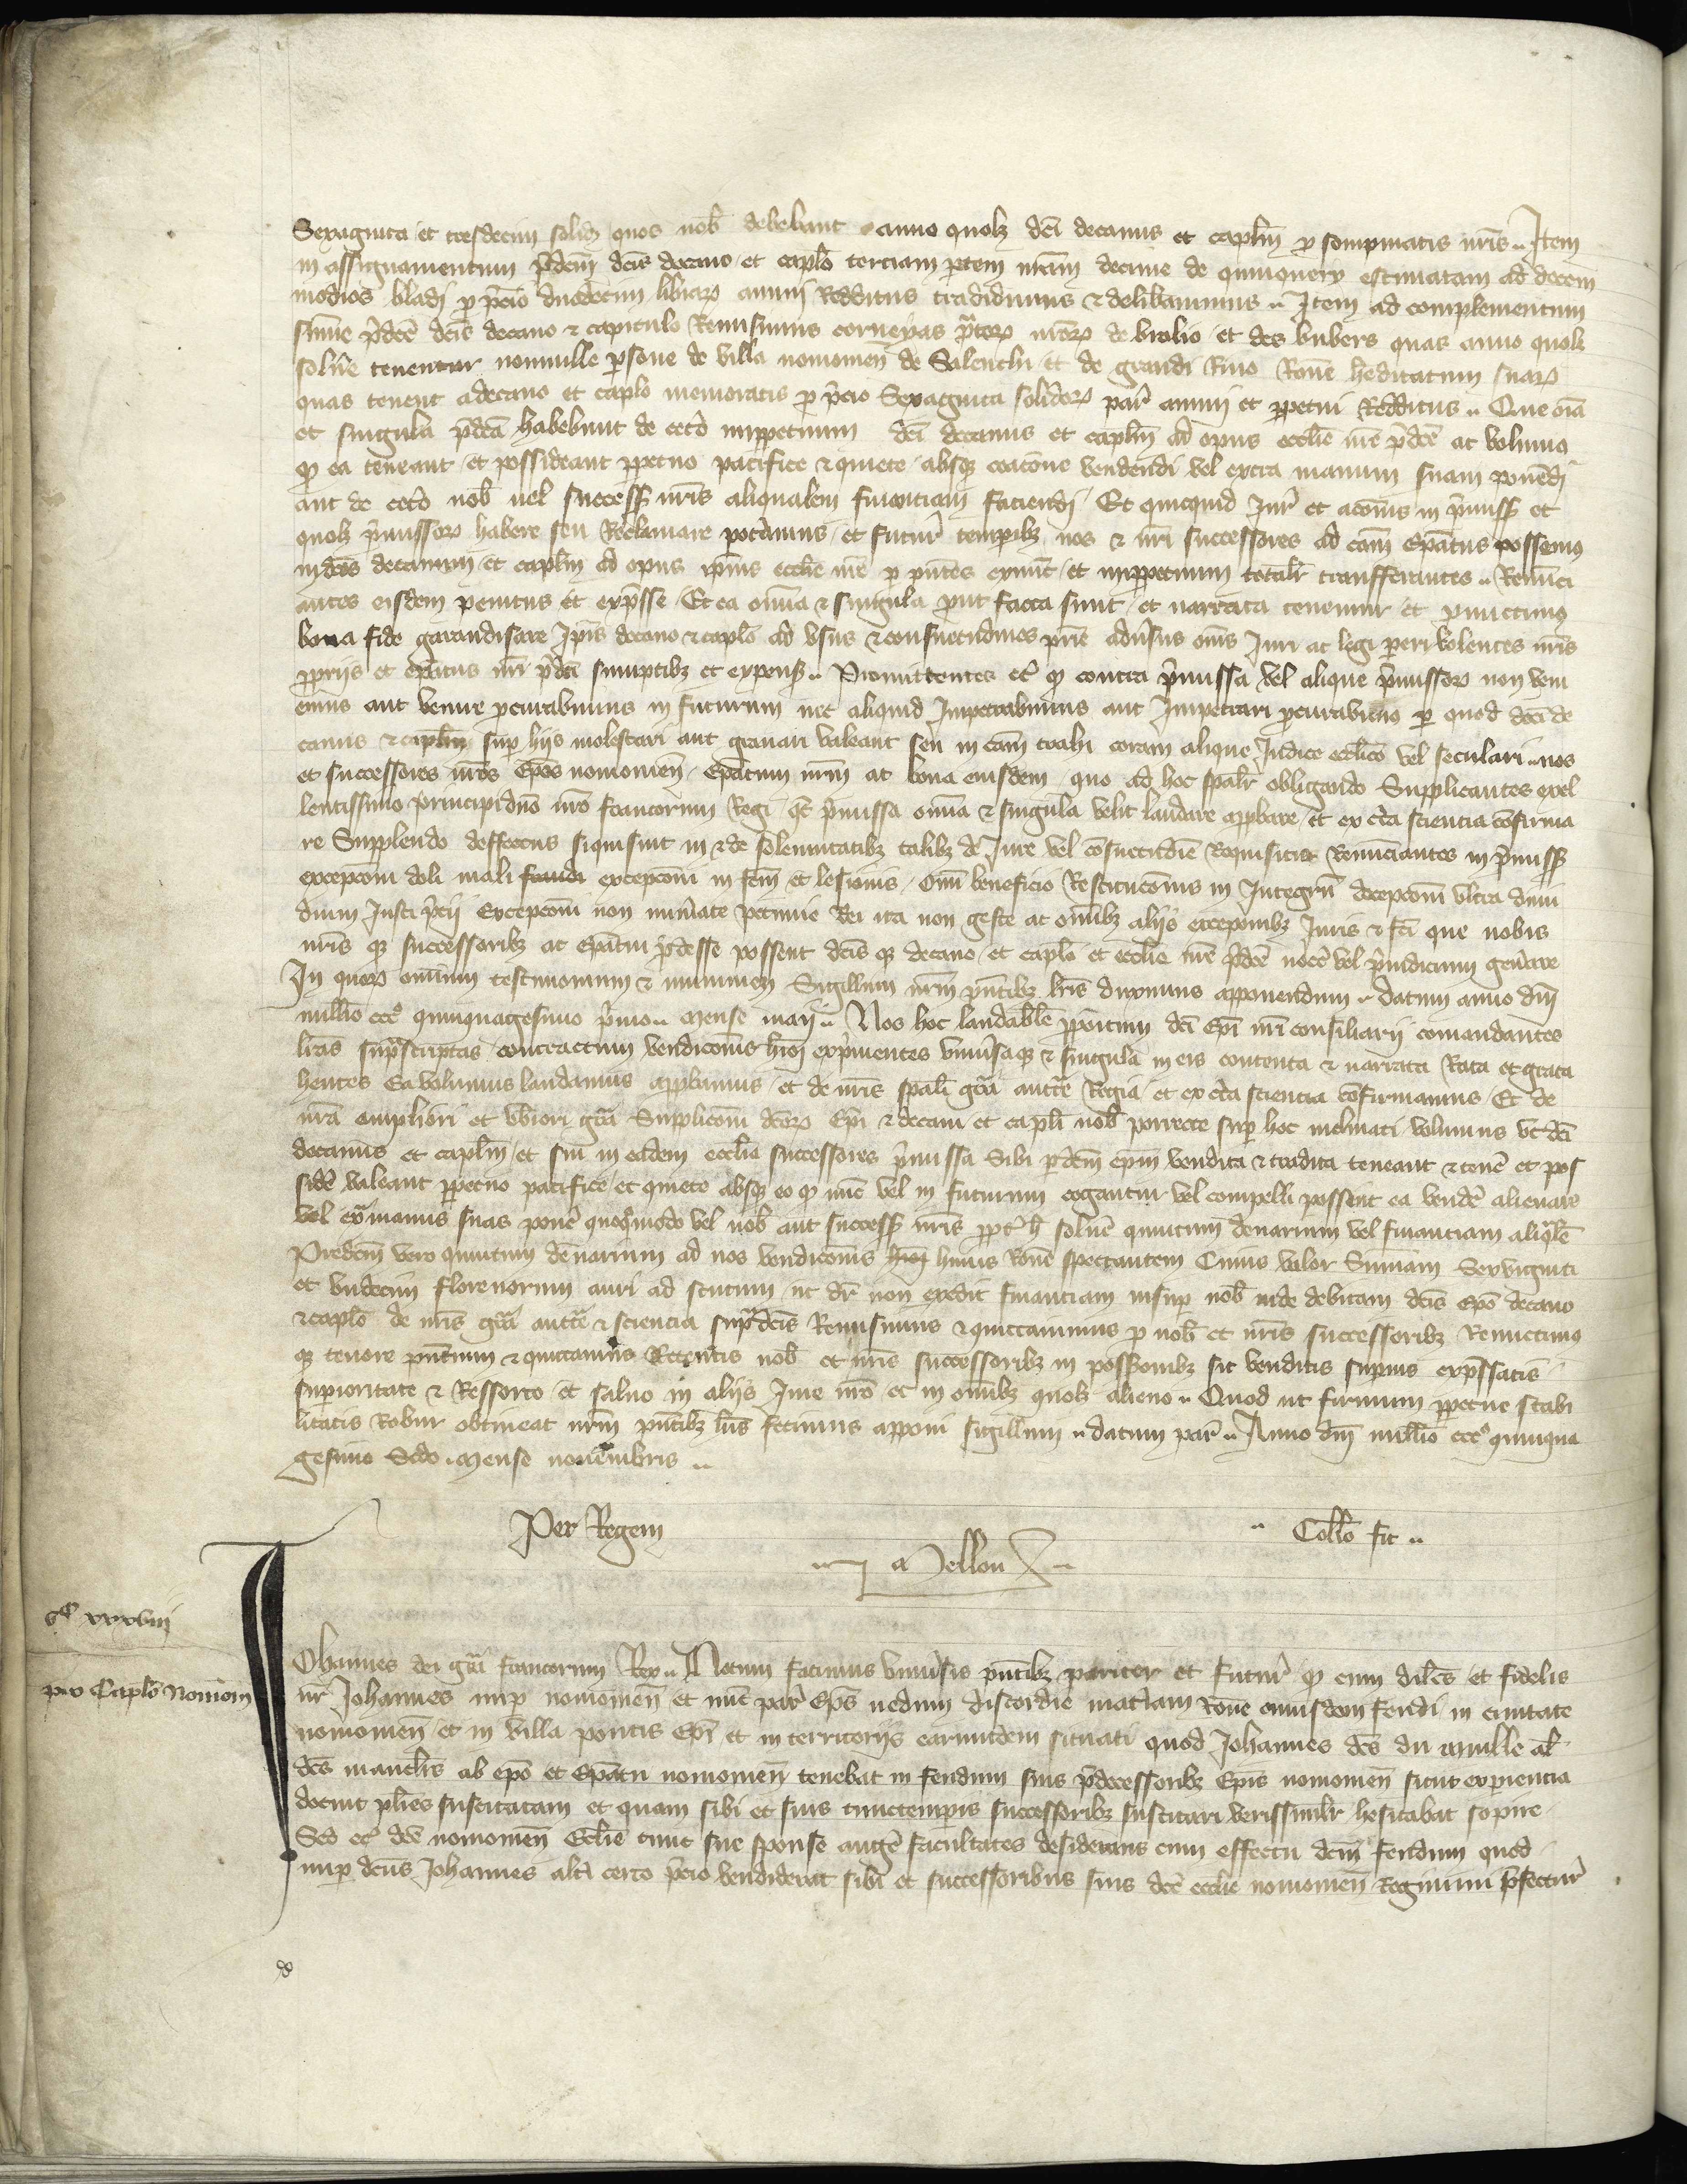 Sexaginta et tresdecim solid quos nob debebant anno quolz dci decanus et caplm p sompmatis nris .. Item
in assignamentum pdcm dcis decano et caplo terciam ptem nram decime de quinquery estimatam ad decem
modios bladi p pcio duodecim librar annui Redditus tradidimus & delibavimus .. Item ad complementum
sume pdce dcis decano & capitulo Remisimus corneyas pror nror de brolio et des bubers quas anno quolz
solue tenentur nonnulle psone de villa nouiomen de Salenchi et de grandi Rivo Rone heditatum suar
quas tenent a decano et caplo memoratis p pcio Sexaginta solidor par annui et ppetui Redditus .. Que oia
et singula pdca habebunt de ceto imppetuum dci decanus et caplm ad opus ecclie nre pdce ac volumus
q ea teneant et possideant ppetuo pacifice & quiete absq coactone vendendi vel extra manum suam ponendi
aut de ceto nob uel success nris aliqualem financiam faciendi / Et quicquid Jur et actonis in pmiss et
quolz pmissor habere seu Reclamare potamus et futur tempibz nos & nri successores ad cam epatus possemus
in dcos decanum et caplm ad opus ipius ecclie nre p pntes exnunc et imppetuum totalr transfferentes .. Renunci
antes eisdem penitus et expsse / Et ea omia & singula put facta sunt et narrata tenemur et pmittimus
bona fide garandisare Ipis decano & caplo ad usus & consuetudines prie adusus oms Juri ac legi peri volentes nris
ppriis et epatus nri pdci sumptibz et expens .. Promittentes ec q contra pmissa vel aliqua pmissor non veni
emus aut venire pcurabimus in futurum nec aliquid Impetrabimus aut Impetrari pcurabimus p quod dci de
canus & caplm sup hiis molestari aut gravari valeant seu in cam trahi coram aliquo Judice ecclico vel seculari .. nos
et successores nros epos nouiomen / Epatum nrm ac bona eiusdem quo ad hoc spalr obligando Supplicantes excel
lentissimo principi dno nro francorum Regi qt pmissa omia & singula velit laudare appbare et ex cta sciencia cofirma
re Supplendo deffectus si qui sint in & de solennitatibz talibz de Jure vel cosuetudie Requisitis Renunciantes in pmiss
excepcom doli mali fraudi excepcom in fcm et lesionis / Omi beneficio Restitucois in Integru decepcom ultra dimi
dium Justi pcii Excepcom non numate pecunie Rei ita non geste ac omibz aliis excepoibz Juris & fci que nobis
nris q successoribz ac epatui pdesse possent dcis q decano et caplo et ecclie nre pdce noce vel pjudicium gen'are
In quor omium testimonium & munimen Sigillum nrm pntibz lris duximus apponendum .. datum anno dni
millio ccco quinquagesimo pmo .. mense maii .. Nos hoc laudabile ppoitum dci Epi nri consiliarii comandantes
lras suprascriptas contractum vendicois hmoi expmentes univsaq & singula in eis contenta & narrata Rata et grata
hentes Ea volumus laudamus appbamus et de nris spali gra auctte Regia et ex cta sciencia cofirmamus / Et de
nra ampliori et ubiori gra Supplicom dcor Epi & decani et capli nob porrecte sup hoc inclinati volumus ut dci
decanus et caplm et sui in eadem ecclia successores pmissa Sibi p dcm epm vendita & tradita teneant & tene et pos
side valeant ppetuo pacifice et quiete absq eo q nuc vel in futurum cogantur vel compelli possint ea vende alienare
vel ex manus suas pone quoquomodo vel nob aut success nris ppt h solue quintum denarium vel financiam aliqle
Predcm vero quintum denarium ad nos vendicois huius Rone spectantem Cuius valor Sumam Sexviginti
et undecim florenorum auri ad scutum ut dr non excedit financiam insup nob inde debitam dcis epo decano
& caplo de nris gra auctte & sciencia supradcis Remisimus & quictavimus p nob et nris successoribz Remictimus
q tenore pntium & quictamus Retentis nob et nris successoribz in possioibz sic venditis supius expssatis
supioritate & Ressorto et salvo in aliis Jure nro et in omibz quolz alieno .. Quod ut firmum ppetue stabi
litatis Robur obtineat nrm pntibz lris fecimus apponi sigillum .. datum par .. Anno dni millio ccco quinqua
gesimo Scdo . mense nouembris ..
Per Regem
.. Collo fit ..
Mellou
C xxxviii
pro Caplo Noniom
Johannes dei gra francorum Rex .. Notum facimus univsis pntibz pariter et futur q cum dilcs et fidelis
nr Johannes nup nouiomen et nuc par Eps nedum discordie matiam Rone cuiusdam feudi in ciuitate
nouiomen et in villa pontis Epi et in territoriis earumdem situati quod Johannes dcs du mulle al
dcs manclers ab epo et Epatu nouiomen tenebat in feudum suis pdecessoribz Epis nouiomen sicut expiencia
docuit plies suscitatam et quam sibi et suis tunctemporis successoribz suscitari verissimilr hesitabat sopire
Sed et dce nouiomen Ecclie tunc sue sponse auge facultates desiderans cum effectu dcm feudum quod
nup dcus Johannes alti certo pcio vendiderat sibi et successoribus suis dce ecclie nouiomen Regimini pfectur